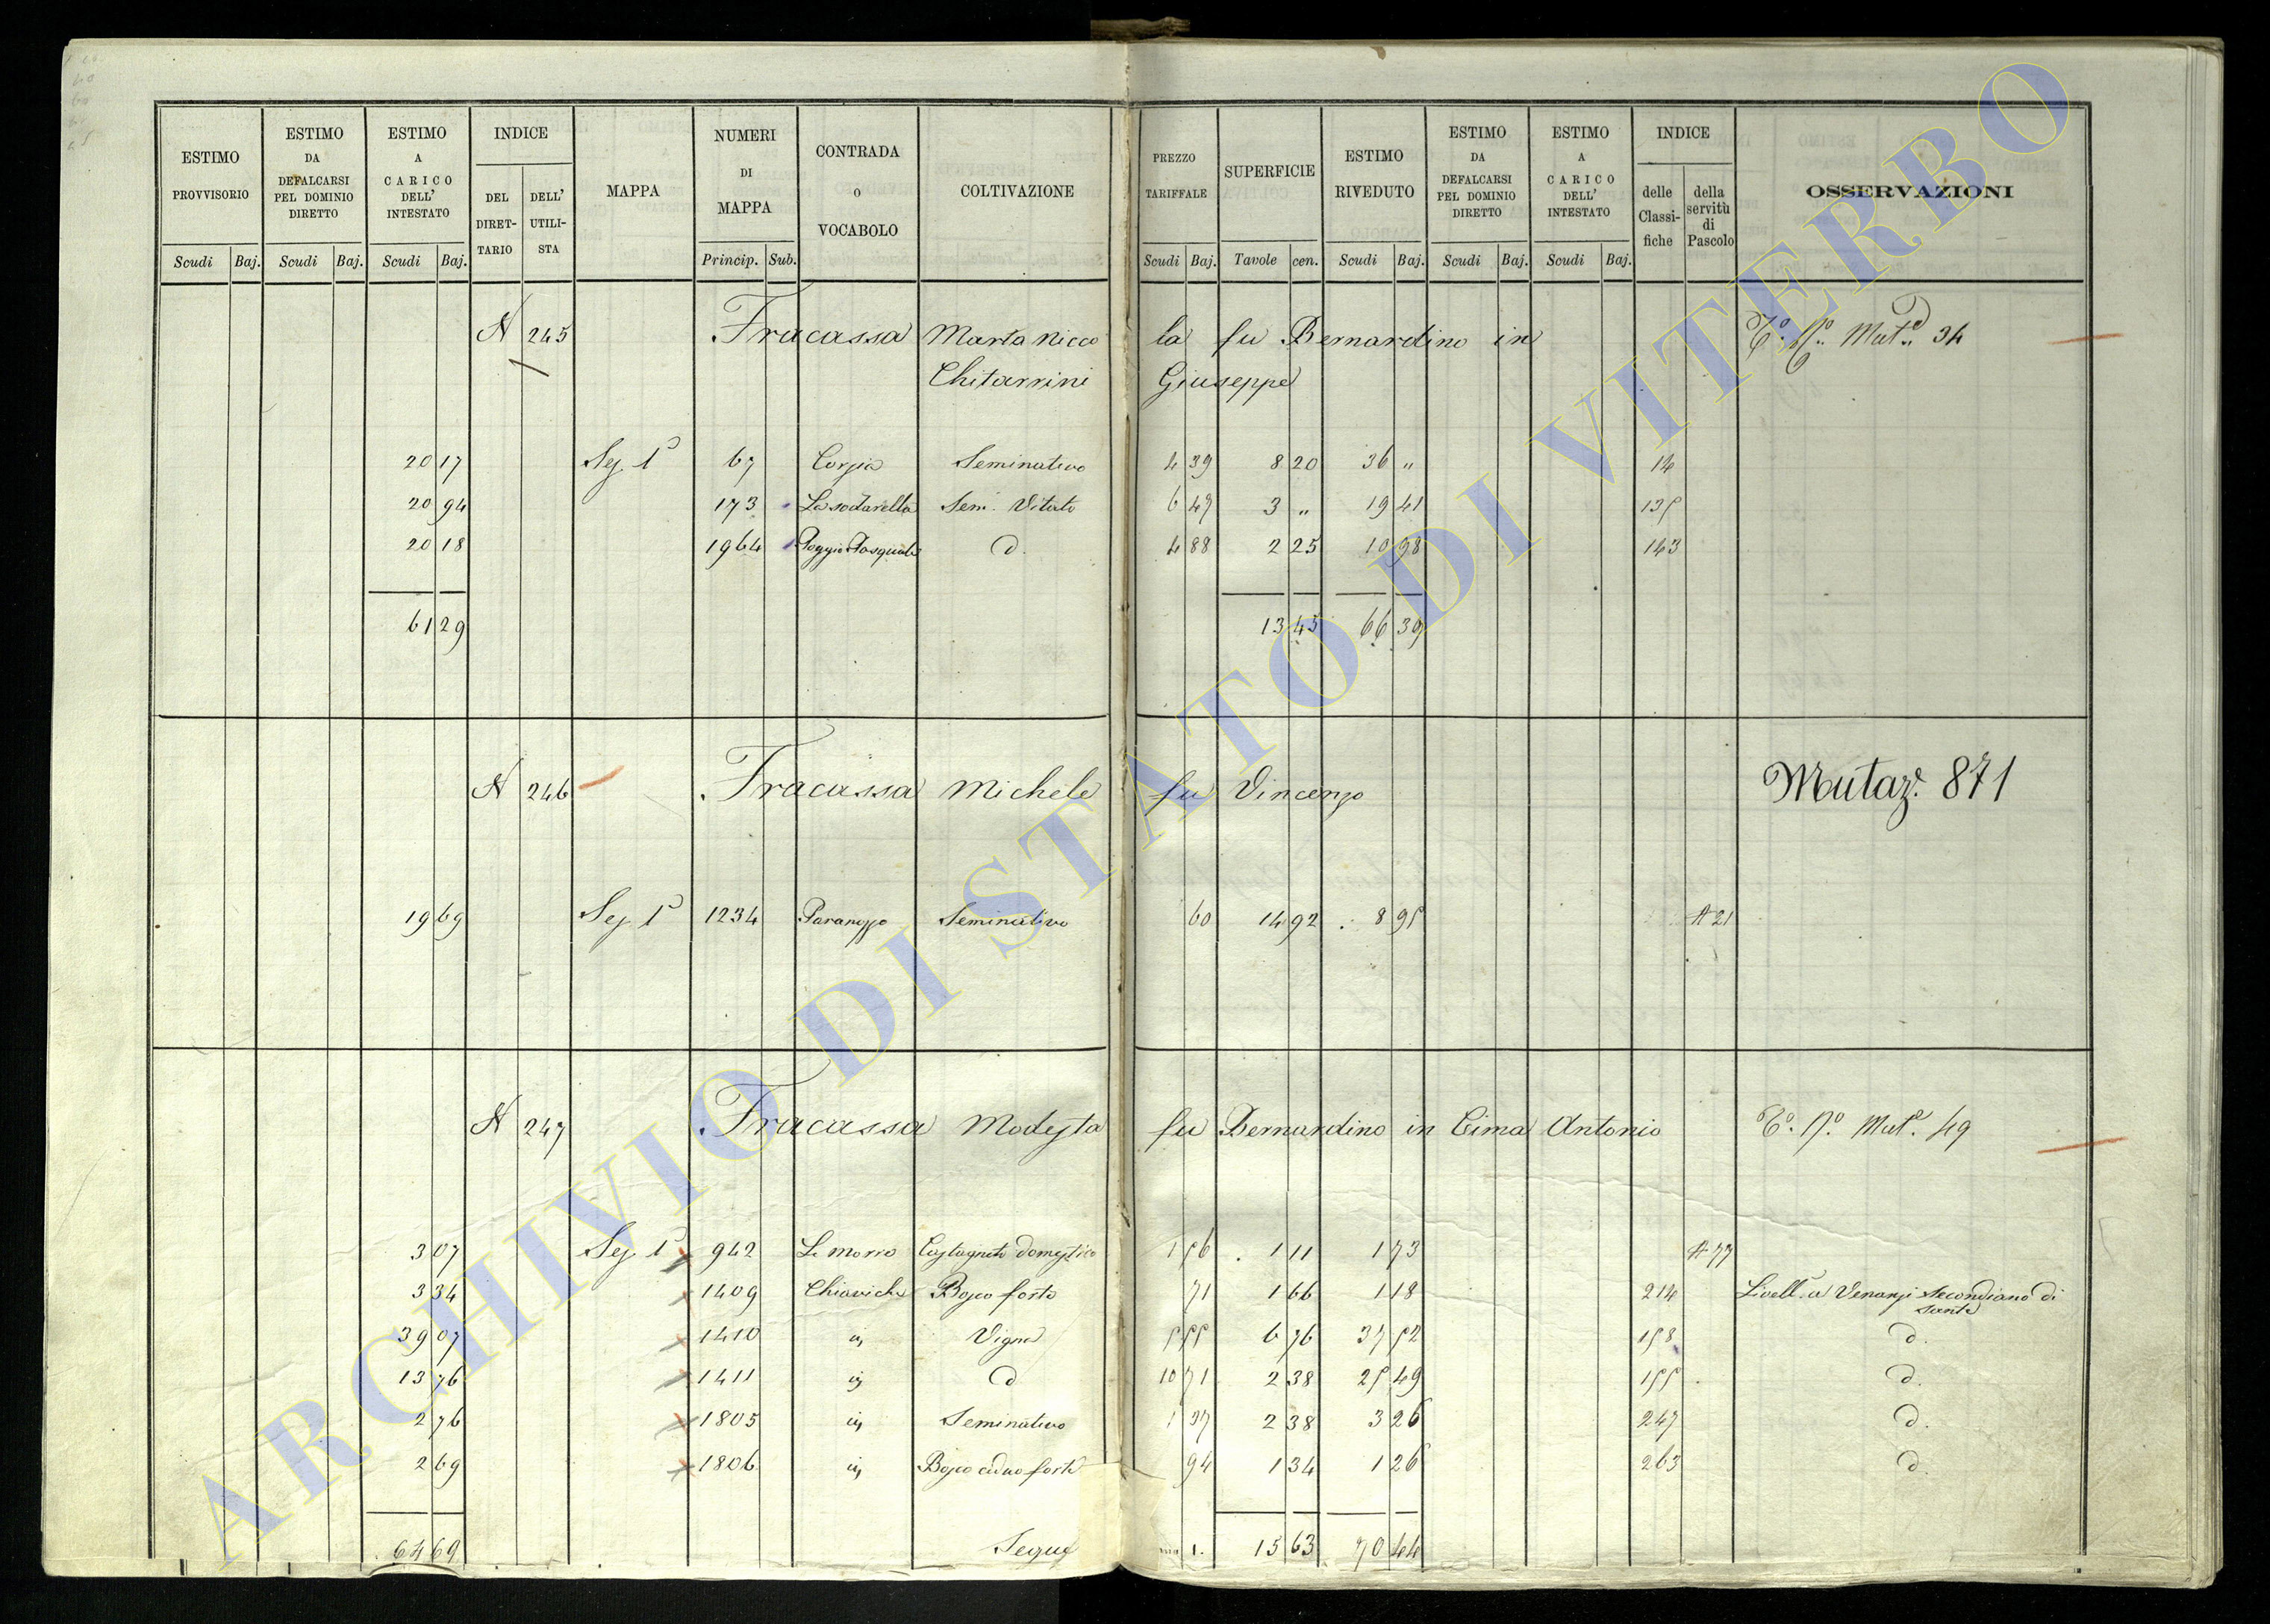 ESTIMO PROVVISORIO
ESTIMO DA DEFALCARSI PEL DOMINIO DIRETTO
ESTIMO A CARICO DELL' INTESTATO
INDICE
DEL DIRET-TARIO
DELL' UTILI-STA
MAPPA
NUMERI DI MAPPA
CONTRADA O VOCABOLO
COLTIVAZIONE
PREZZO TARIFFALE
SUPERFICIE
ESTIMO RIVEDUTO
ESTIMO DA DEFALCARSI PEL DOMINIO DIRETTO
ESTIMO A CARICO DELL' INTESTATO
INDICE
delle Classi-fiche
della servitù di Pascolo
OSSERVAZIONI
Scudi Baj. Scudi Baj. Scudi Baj. Princip. Sub. Scudi Baj. Tavole cen. Scudi Baj. Scudi Baj. Scudi Baj.
N 245 Fracassa Marta Nicco la fu Bernardino in Mut. 34
Chitarrini Giuseppe
20 17 Sez. 1ª 67 Seminativo 4 39 8 20 36 " 14
20 94 173 La sodarella Sem. Vitato 6 47 3 " 19 41 135
20 18 1964 Poggio Pasquale d. 4 88 2 25 10 98 143
61 29 13 45 66 39
N 246 Fracassa Michele fu Vincenzo Mutaz. 871
19 69 Sez. 1ª 1234 Seminativo 60 14 92 8 95 A 21
N 247 Fracassa Modesta fu Bernardino in Cima Antonio Mut. 49
3 07 Sez. 1ª 942 Le morre Castagneto domestico 1 56 1 11 1 73 A 77
3 34 1409 Chiaviche Bosco forte 71 1 66 1 18 214 Livell. a Venanzi Secondiano di Sante
39 07 1410 Vigna 5 55 6 76 37 52 158 d.
13 76 1411 d 10 71 2 38 25 49 155 d.
2 76 1805 Seminativo 1 37 2 38 3 26 247 d.
2 69 1806 Bosco ceduo forte 94 1 34 1 26 263 d.
64 69 Segue 15 63 70 44
ARCHIVIO DI STATO DI VITERBO